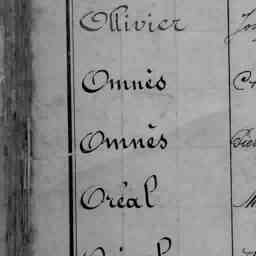 Ollivier
Omnès
Omnès
Oréal